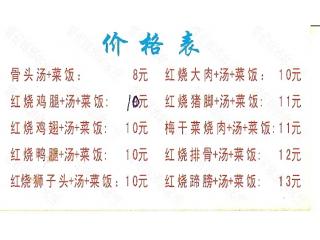 价格表
骨头汤+菜饭: 8元
红烧大肉+汤+菜饭: 10元
红烧鸡腿+汤+菜饭: 10元
红烧猪脚+汤+菜饭: 11元
红烧鸡翅+汤+菜饭: 10元
梅干菜烧肉+汤+菜饭:11元
红烧鸭腿+汤+菜饭: 10元
红烧排骨+汤+菜饭: 12元
红烧狮子头+汤+菜饭:10元
红烧蹄膀+汤+菜饭: 13元